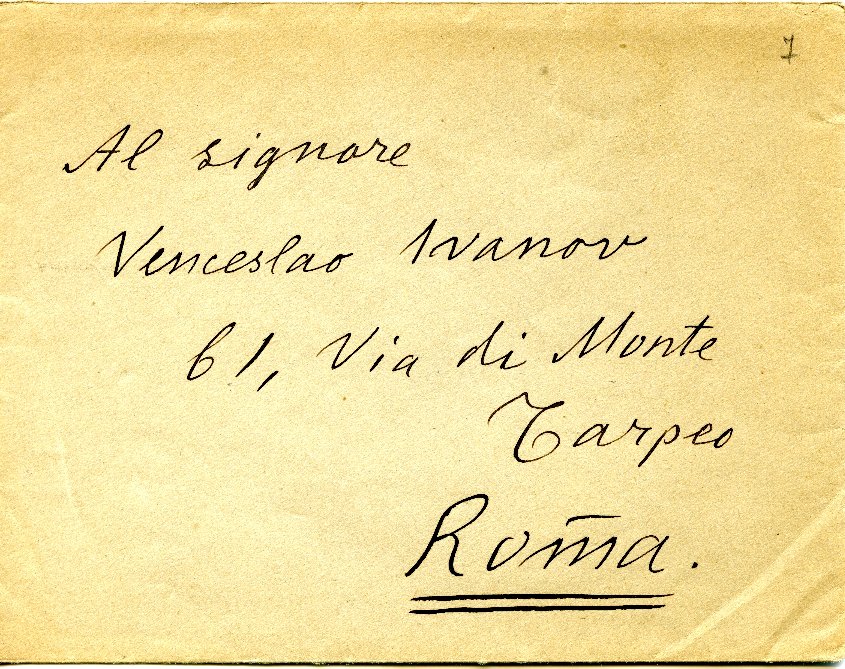 7
Al signore
Venceslao Ivanov
61, Via di Monte
Tarpeo
Roma.